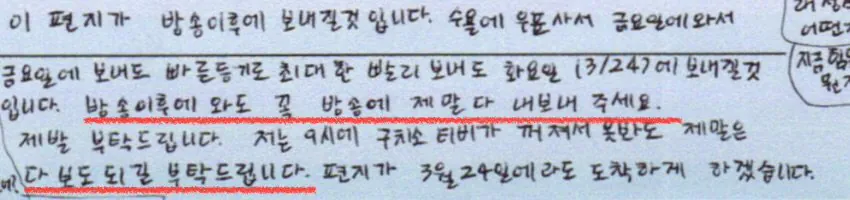 이 편지가 방송이후에 보내질것 입니다. 수욜에 우표사서 금요일에와서
어떤
금요일에 보내도 빠른등기로 최대한 빨리 보내도 화요일 (3/24)에 보내질것
지금
입니다. 방송이후에 와도 꼭 방송에 제말 다 내보내 주세요.
제발 부탁드립니다. 저는 9시에 구치소 티비가 꺼져서 못반도 제말은
다 보도 되길 부탁드립니다. 편지가 3월24일에라도 도착하게 하겠습니다.